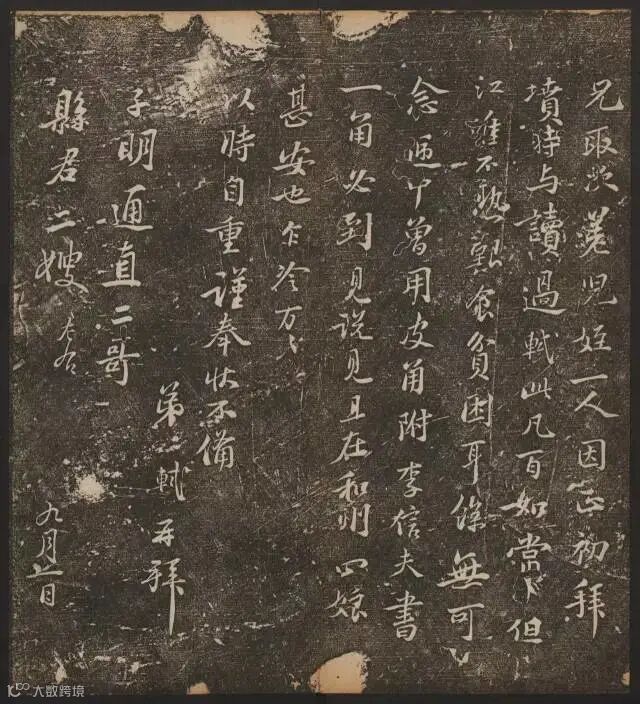 兄取次差兒姪一人因正初拜
墳時与讀過軾此凡百如常但
江淮不熟艱食貧困耳餘無可
念遞中曾用皮角附李信夫書
一角必到見說見且在和州四娘
甚安也乍冷万万
以時自重謹奉狀不備
弟軾再拜
子明通直二哥
縣君二嫂左右
九月 日
大数跨境